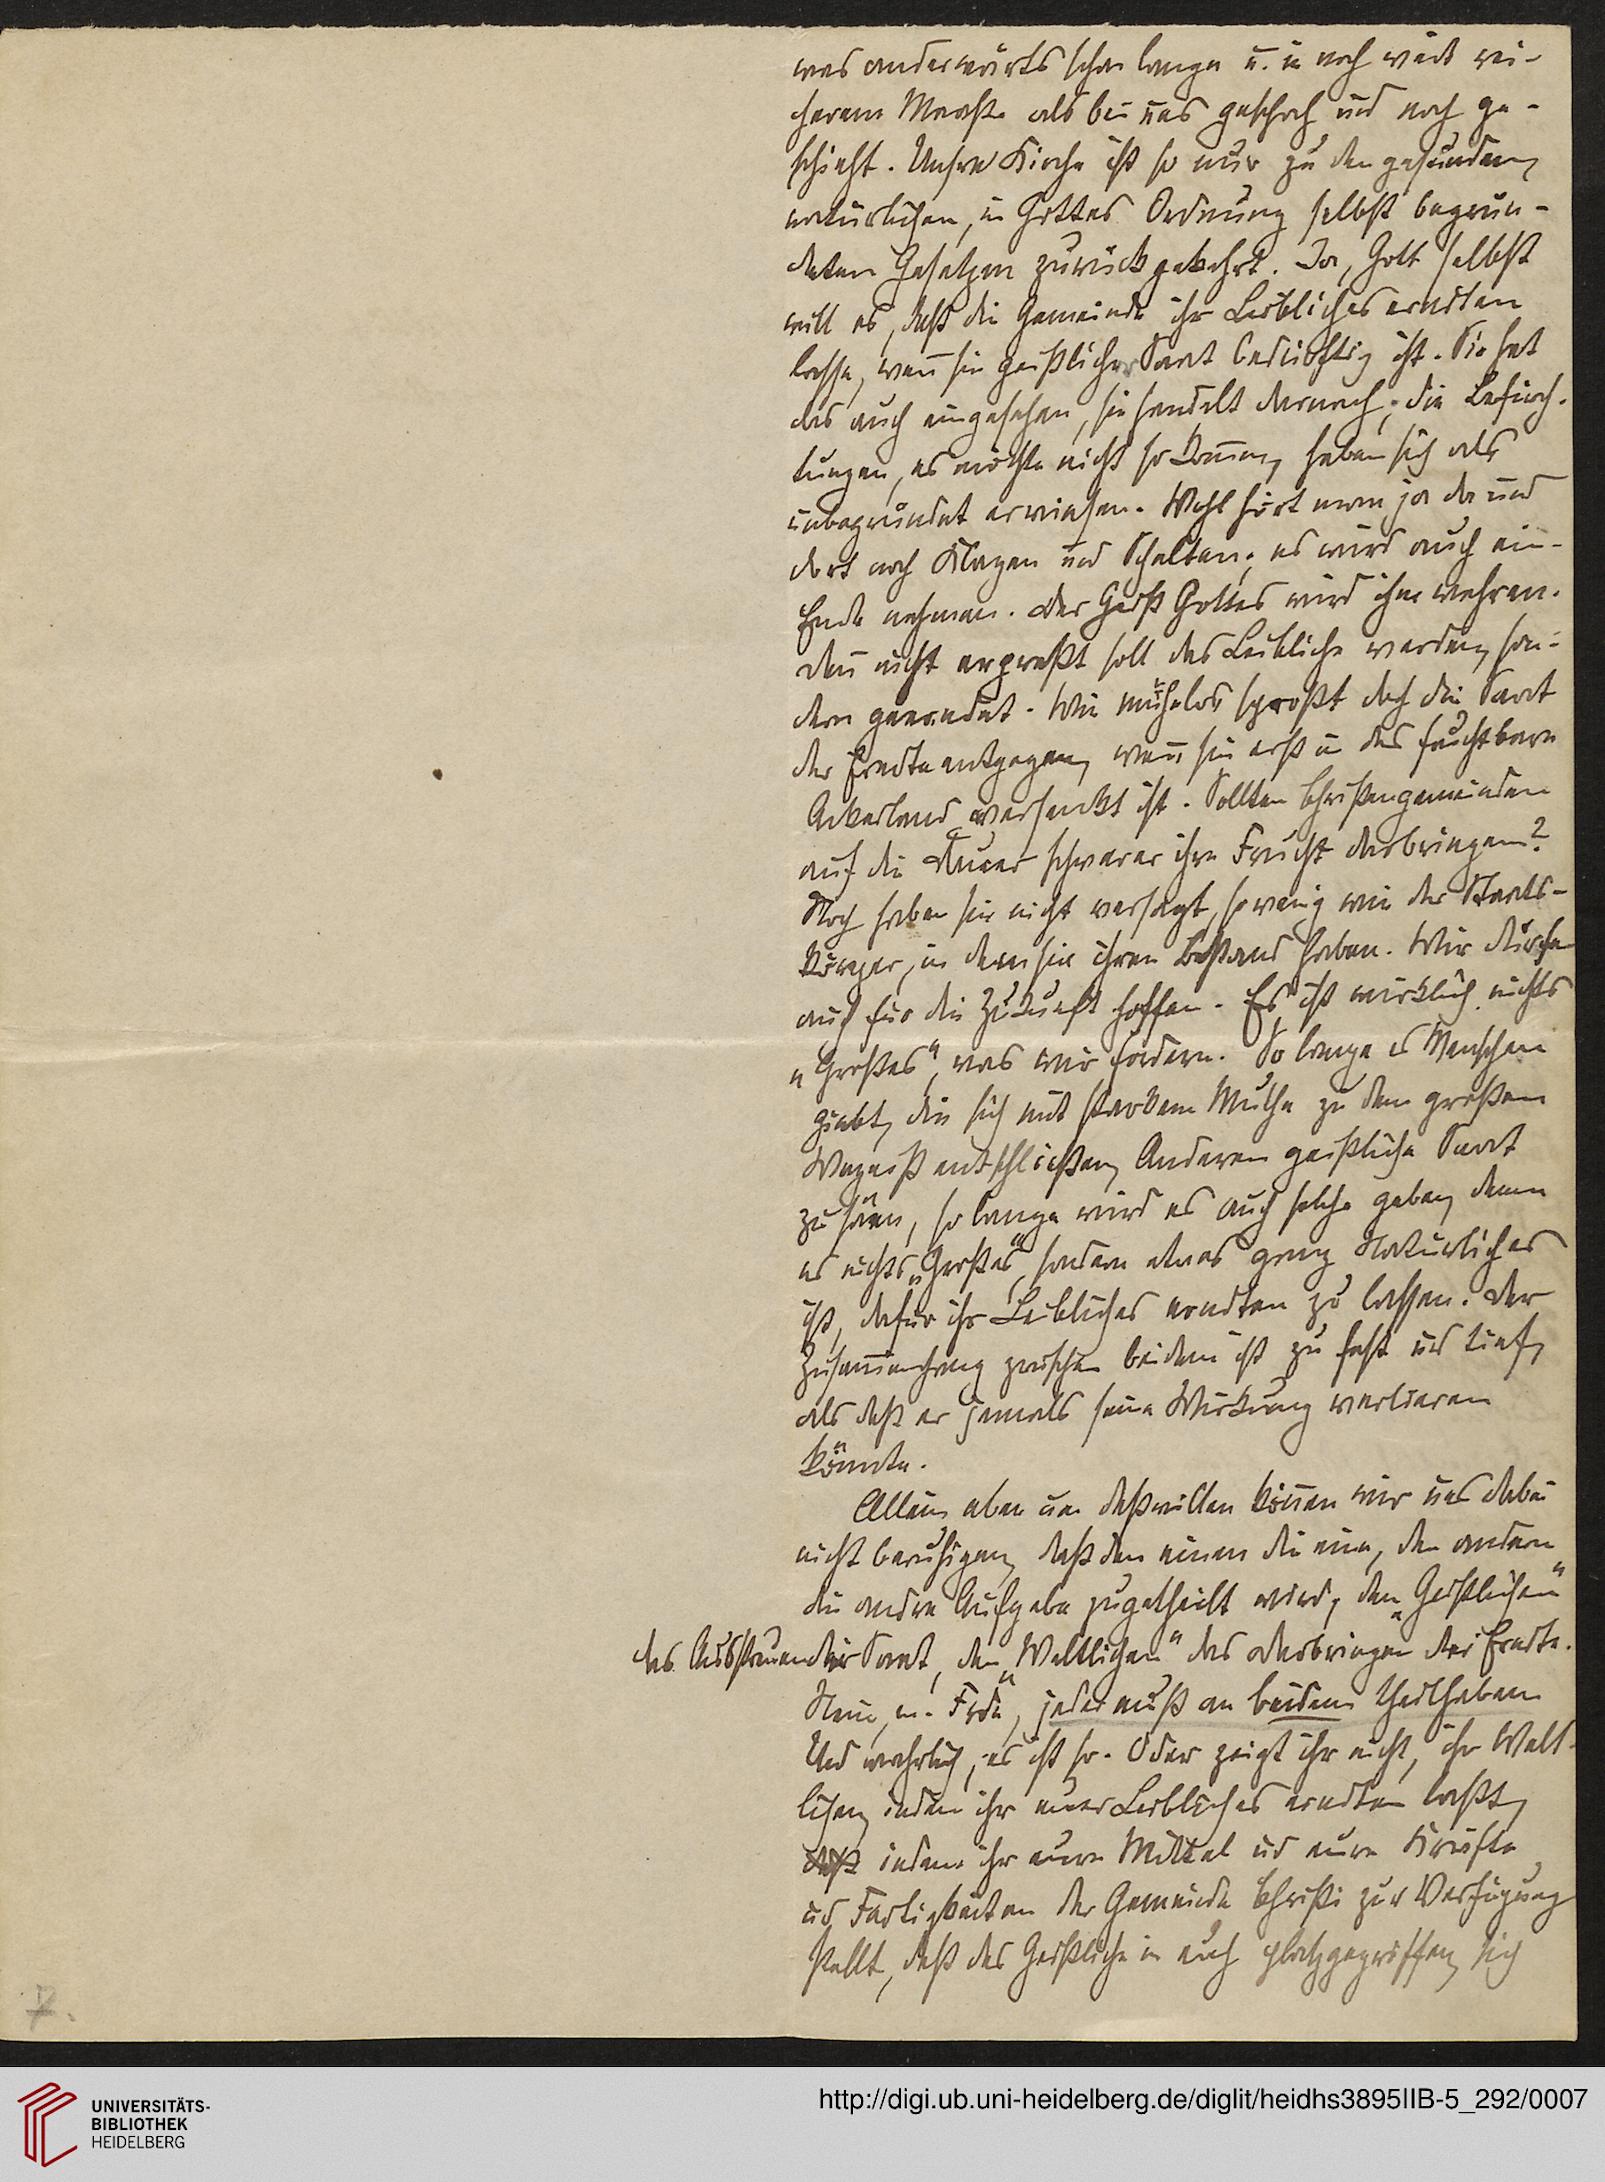 was anderwärts schon lange u. in noch weit rei-
cherem Maaße als bei uns geschah und noch ge-
schieht. Unsre Kirche ist so nur zu den gesunden,
natürlichen, in Gottes Ordnung selbst begrün-
deten Gesetzen zurückgekehrt. Ja, Gott selbst
will es, daß die Gemeinde ihr Leibliches erndten
lasse, wenn sie geistlicher Saat bedürftig ist. Sie hat
das auch eingesehen, sie handelt darnach; die Befürch-
tungen, es möchte nicht so kommen, haben sich als
unbegründet erwiesen. Wohl hört man ja da und
dort noch Klagen und Schelten; es wird auch ein
Ende nehmen. Der Geist Gottes wird ihm wehren.
Denn nicht erpreßt soll das Leibliche werden, son-
dern geerndet. Wie mühelos sproßt doch die Saat
der Erndte entgegen, wenn sie erst in das fruchtbare
Ackerland versenkt ist. Sollten Christengemeinden
auf die Dauer schwerer ihre Frucht darbringen?
Noch haben sie nicht versagt, so wenig wie der Staats-
körper, in dem sie ihren Bestand haben. Wir dürfen
auch für die Zukunft hoffen. Es ist wirklich nichts
„Großes", was wir fordern. So lange es Menschen
giebt, die sich mit starkem Muthe zu dem großen
Wagniß entschließen, Anderen geistliche Saat
zu säen, so lange wird es auch solche geben, denen
es nichts „Großes", sondern etwas ganz Natürliches
ist, dafür ihr Leibliches erndten zu lassen. Der
Zusammenhang zwischen beidem ist zu fest und tief,
als daß er jemals seine Wirkung verlieren
könnte.
Allein eben um deßwillen können wir uns dabei
nicht beruhigen, daß den einen die eine, den andern
die andre Aufgabe zugetheilt wird, den „Geistlichen"
das Ausstreuen der Saat, den „Weltlichen" das Darbringen der Erndte.
Nein, m. Frde, jeder muß an beidem theilhaben
Und wahrlich, es ist so. Oder zeigt ihr nicht, ihr Welt-
lichen, indem ihr euer Leibliches erndten laßt,
daß indem ihr eure Mittel und eure Kräfte
und Fertigkeiten der Gemeinde Christi zur Verfügung
stellt, daß das Geistliche in euch platzgegriffen, sich
7.
UNIVERSITÄTS-
BIBLIOTHEK
HEIDELBERG
http://digi.ub.uni-heidelberg.de/diglit/heidhs3895IIB-5_292/0007